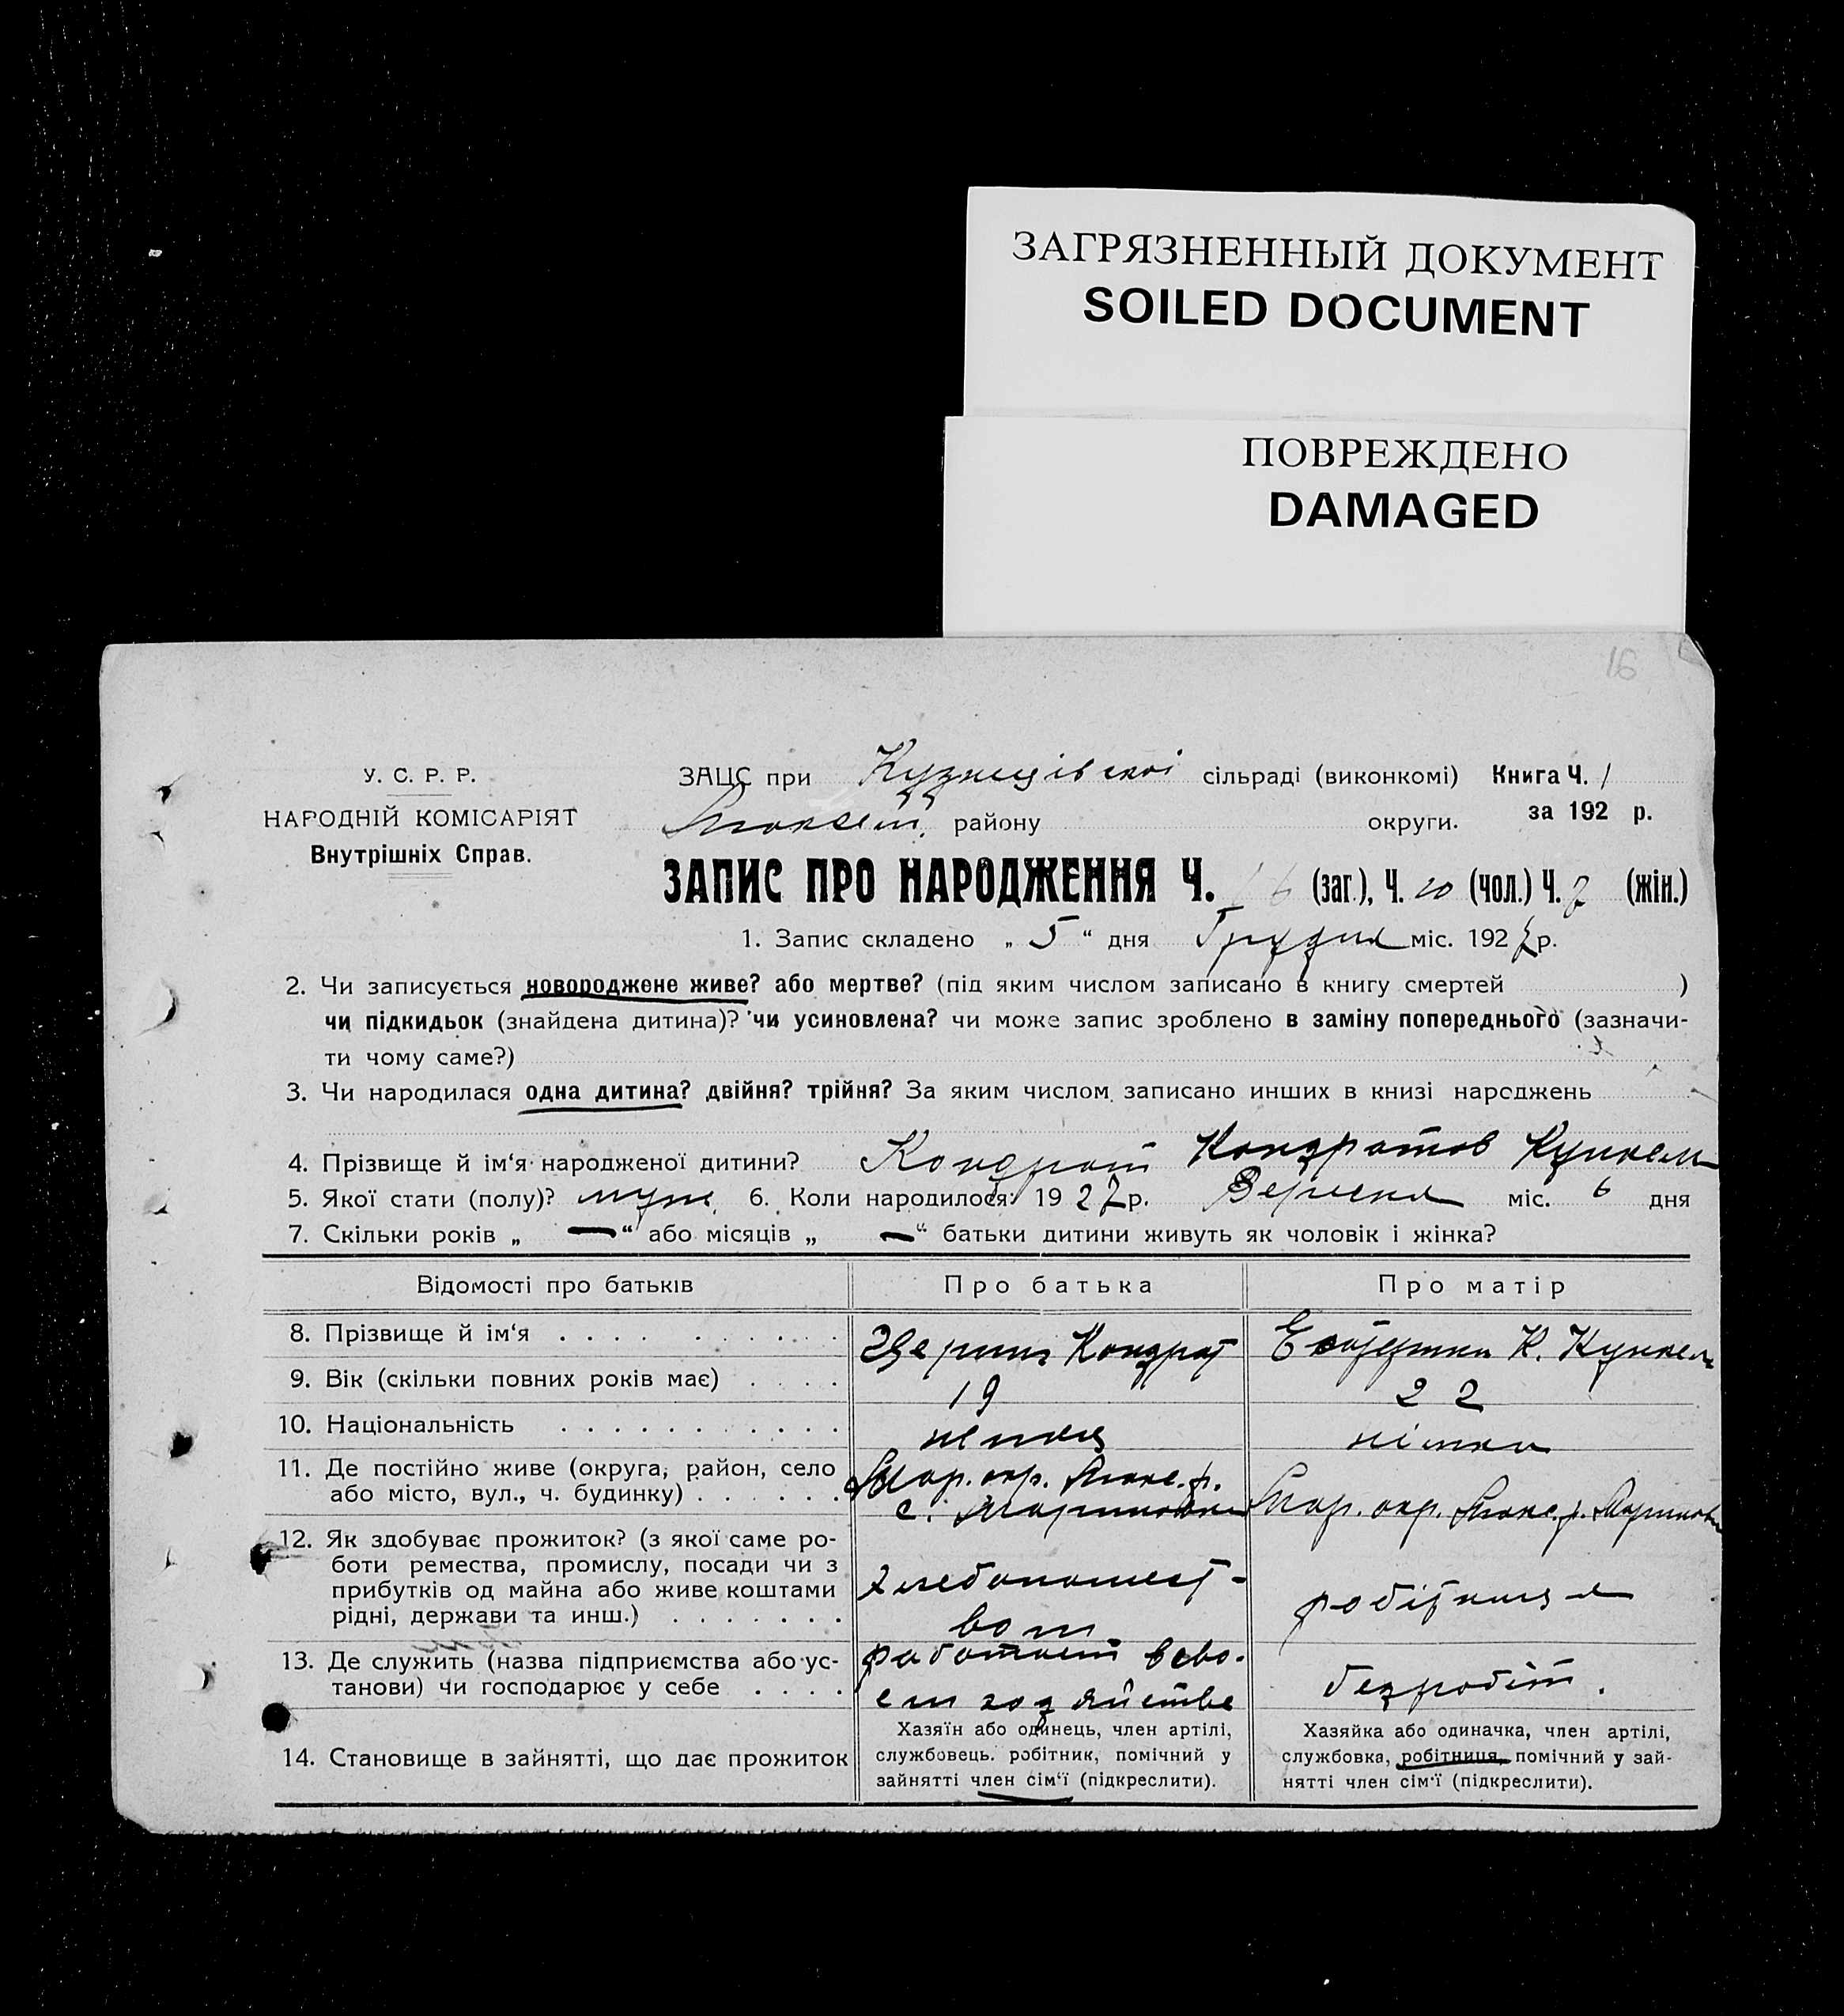 ЗАГРЯЗНЕННЫЙ ДОКУМЕНТ
SOILED DOCUMENT
ПОВРЕЖДЕНО
DAMAGED
16
У. С. Р. Р.
НАРОДНІЙ КОМІСАРІЯТ
Внутрішніх Справ.
ЗАЦС при Кузнецівской сільраді (виконкомі) Книга Ч. 1
району округи. за 192 р.
ЗАПИС ПРО НАРОДЖЕННЯ Ч. 16 (заг.), Ч. 10 (чол.) Ч. (жін.)
1. Запис складено „ 5 “ дня Грудня міс. 1927 р.
2. Чи записується новороджене живе? або мертве? (під яким числом записано в книгу смертей )
чи підкидьок (знайдена дитина)? чи усиновлена? чи може запис зроблено в заміну попереднього (зазначи-
ти чому саме?)
3. Чи народилася одна дитина? двійня? трійня? За яким числом записано инших в книзі народжень
4. Прізвище й ім‘я народженої дитини? Кондрат Кондратов Кункель
5. Якої стати (полу)? муж. 6. Коли народилося: 1927 р. Вересня міс. 6 дня
7. Скільки років „ — “ або місяців „ — “ батьки дитини живуть як чоловік і жінка?
Відомості про батьків Про батька Про матір
8. Прізвище й ім‘я . . . . . . . . . . Кондрат К. Кункель
9. Вік (скільки повних років має) . . . . 19 22
10. Національність . . . . . . . . . . . . немец німка
11. Де постійно живе (округа, район, село Мар. окр. р.
або місто, вул., ч. будинку) . . . . . . с. Мариновка Мар. окр. р. Мариновк
12. Як здобуває прожиток? (з якої саме ро-
боти ремества, промислу, посади чи з хлебопашест-
прибутків од майна або живе коштами робітниця
рідні, держави та инш.) . . . . . . . вом
13. Де служить (назва підприємства або ус- работает в сво-
танови) чи господарює у себе . . . . ем хозяйстве безробіт.
14. Становище в зайнятті, що дає прожиток
Хазяїн або одинець, член артілі,
службовець. робітник, помічний у
зайнятті член сім‘ї (підкреслити).
Хазяйка або одиначка, член артілі,
службовка, робітниця, помічний у зай-
нятті член сім‘ї (підкреслити).